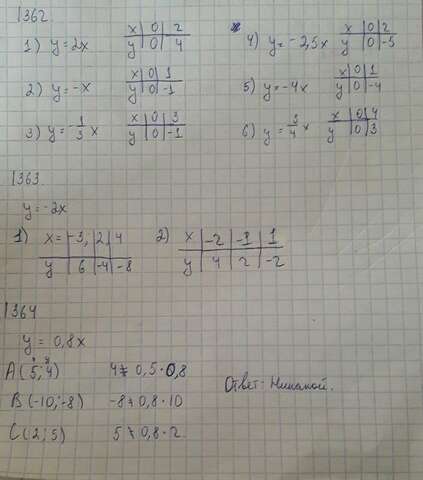 1362.
1) y=2x x | 0 | 2
y | 0 | 4
2) y=-x x | 0 | 1
y | 0 | -1
3) y=-1/3 x x | 0 | 3
y | 0 | -1
4) y=-2,5x x | 0 | 2
y | 0 | -5
5) y=-4x x | 0 | 1
y | 0 | -4
6) y=3/4 x x | 0 | 4
y | 0 | 3
1363.
y=-2x
1) x=-3, | 2 | 4
y | 6 | -4 | -8
2) x | -2 | -1 | 1
y | 4 | 2 | -2
1364
y = 0,8x
A(5;4) 4≠0,5·0,8
B(-10;-8) -8≠0,8·10
C(2;5) 5≠0,8·2
Ответ: Никакой.